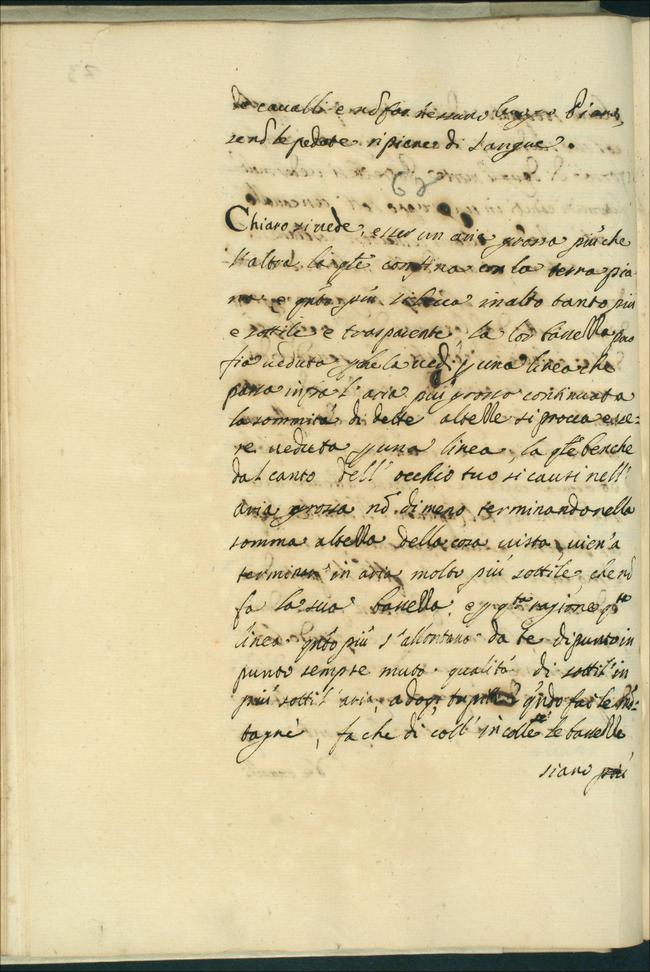 de caualli e nõ far nessuno luogo piano,
se nõ le pedate ripiene di sangue.
Chiaro si uede, esser un aria grossa più che
l'altra la qle confina con la terra pia
na, e qñto più s'leua in alto tanto più
e sottile e trasparente la
fia ueduta ed una linea che
passa infra l'aria più grossa continuata
la sommità di dette altezze si essere
re ueduta p una linea, la qle benche
dal canto dell'occhio tuo si causi nell'
aria grossa nõ dimeno terminando nella
somma altezza della cosa uista, uien'a
terminar' in aria molto più sottile che nõ
fa la sua bassezza, e p qta ragione qta
linea qñto più s'allontana da te di punto in
punto sempre muta qualità di sottil' in
più sottil' aria, adoq tu pittor qñdo fai le mõ-
tagne, fa che di coll' in colle le bassezze
siano più